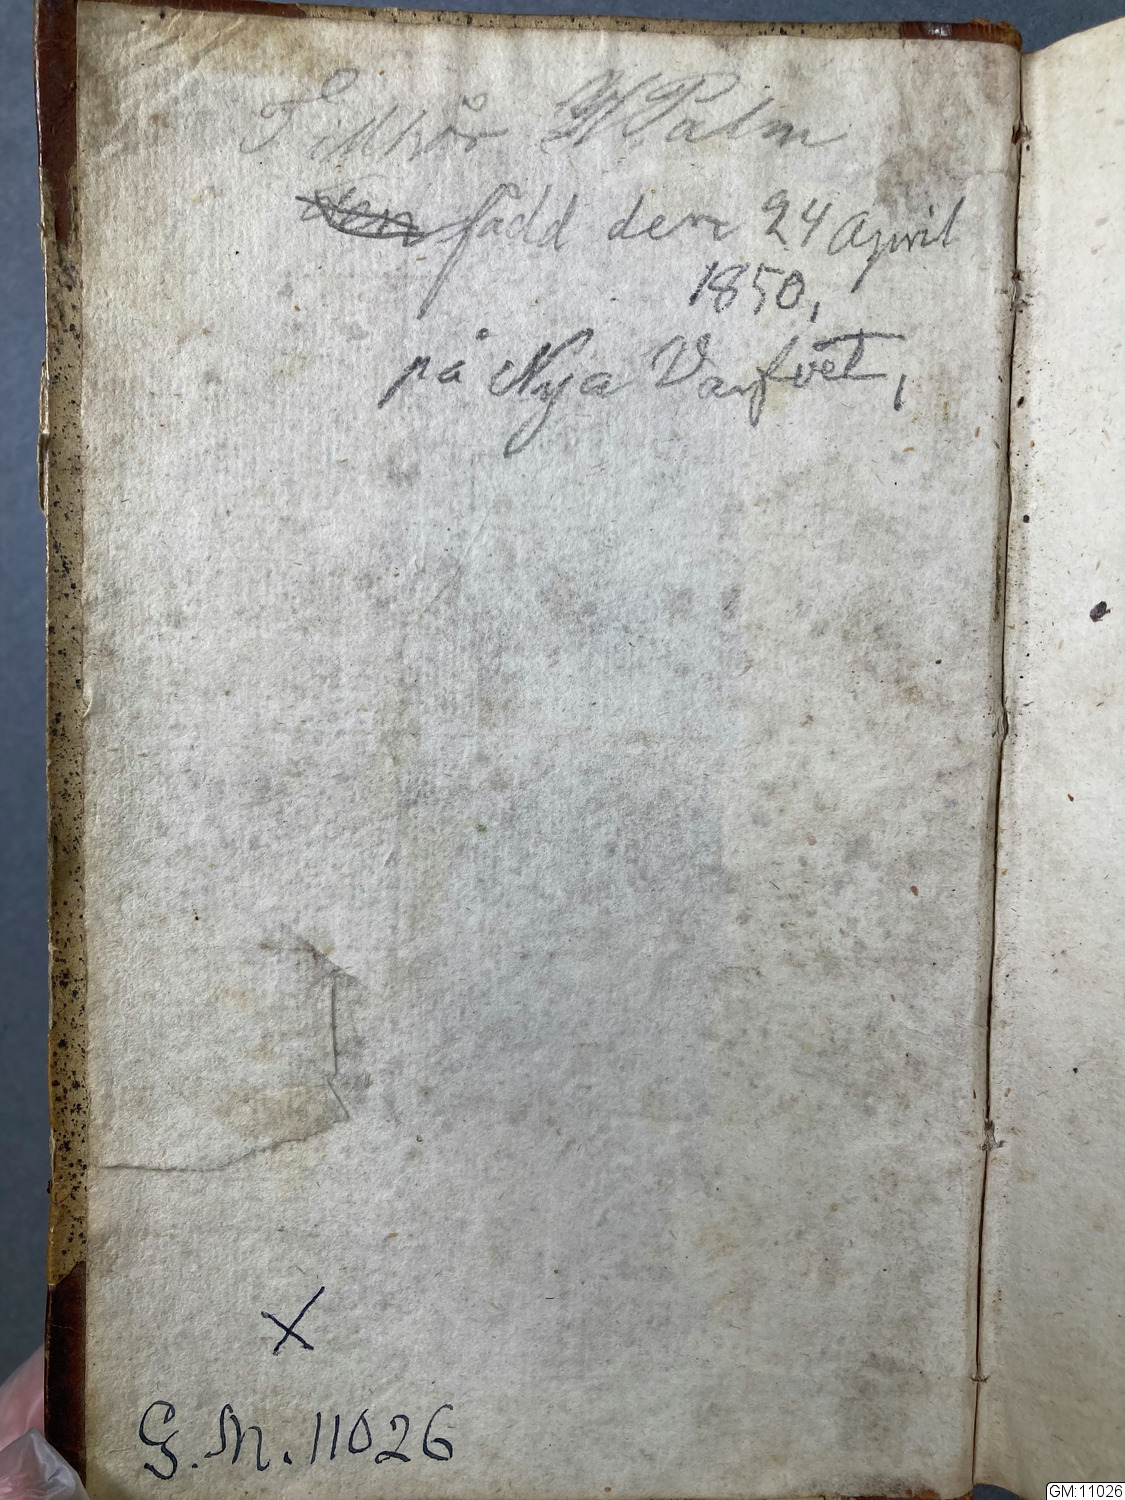 Tillhör W Palm
född den 24 April
1850,
på Nya Varfvet,
X
G.M. 11026
GM:11026